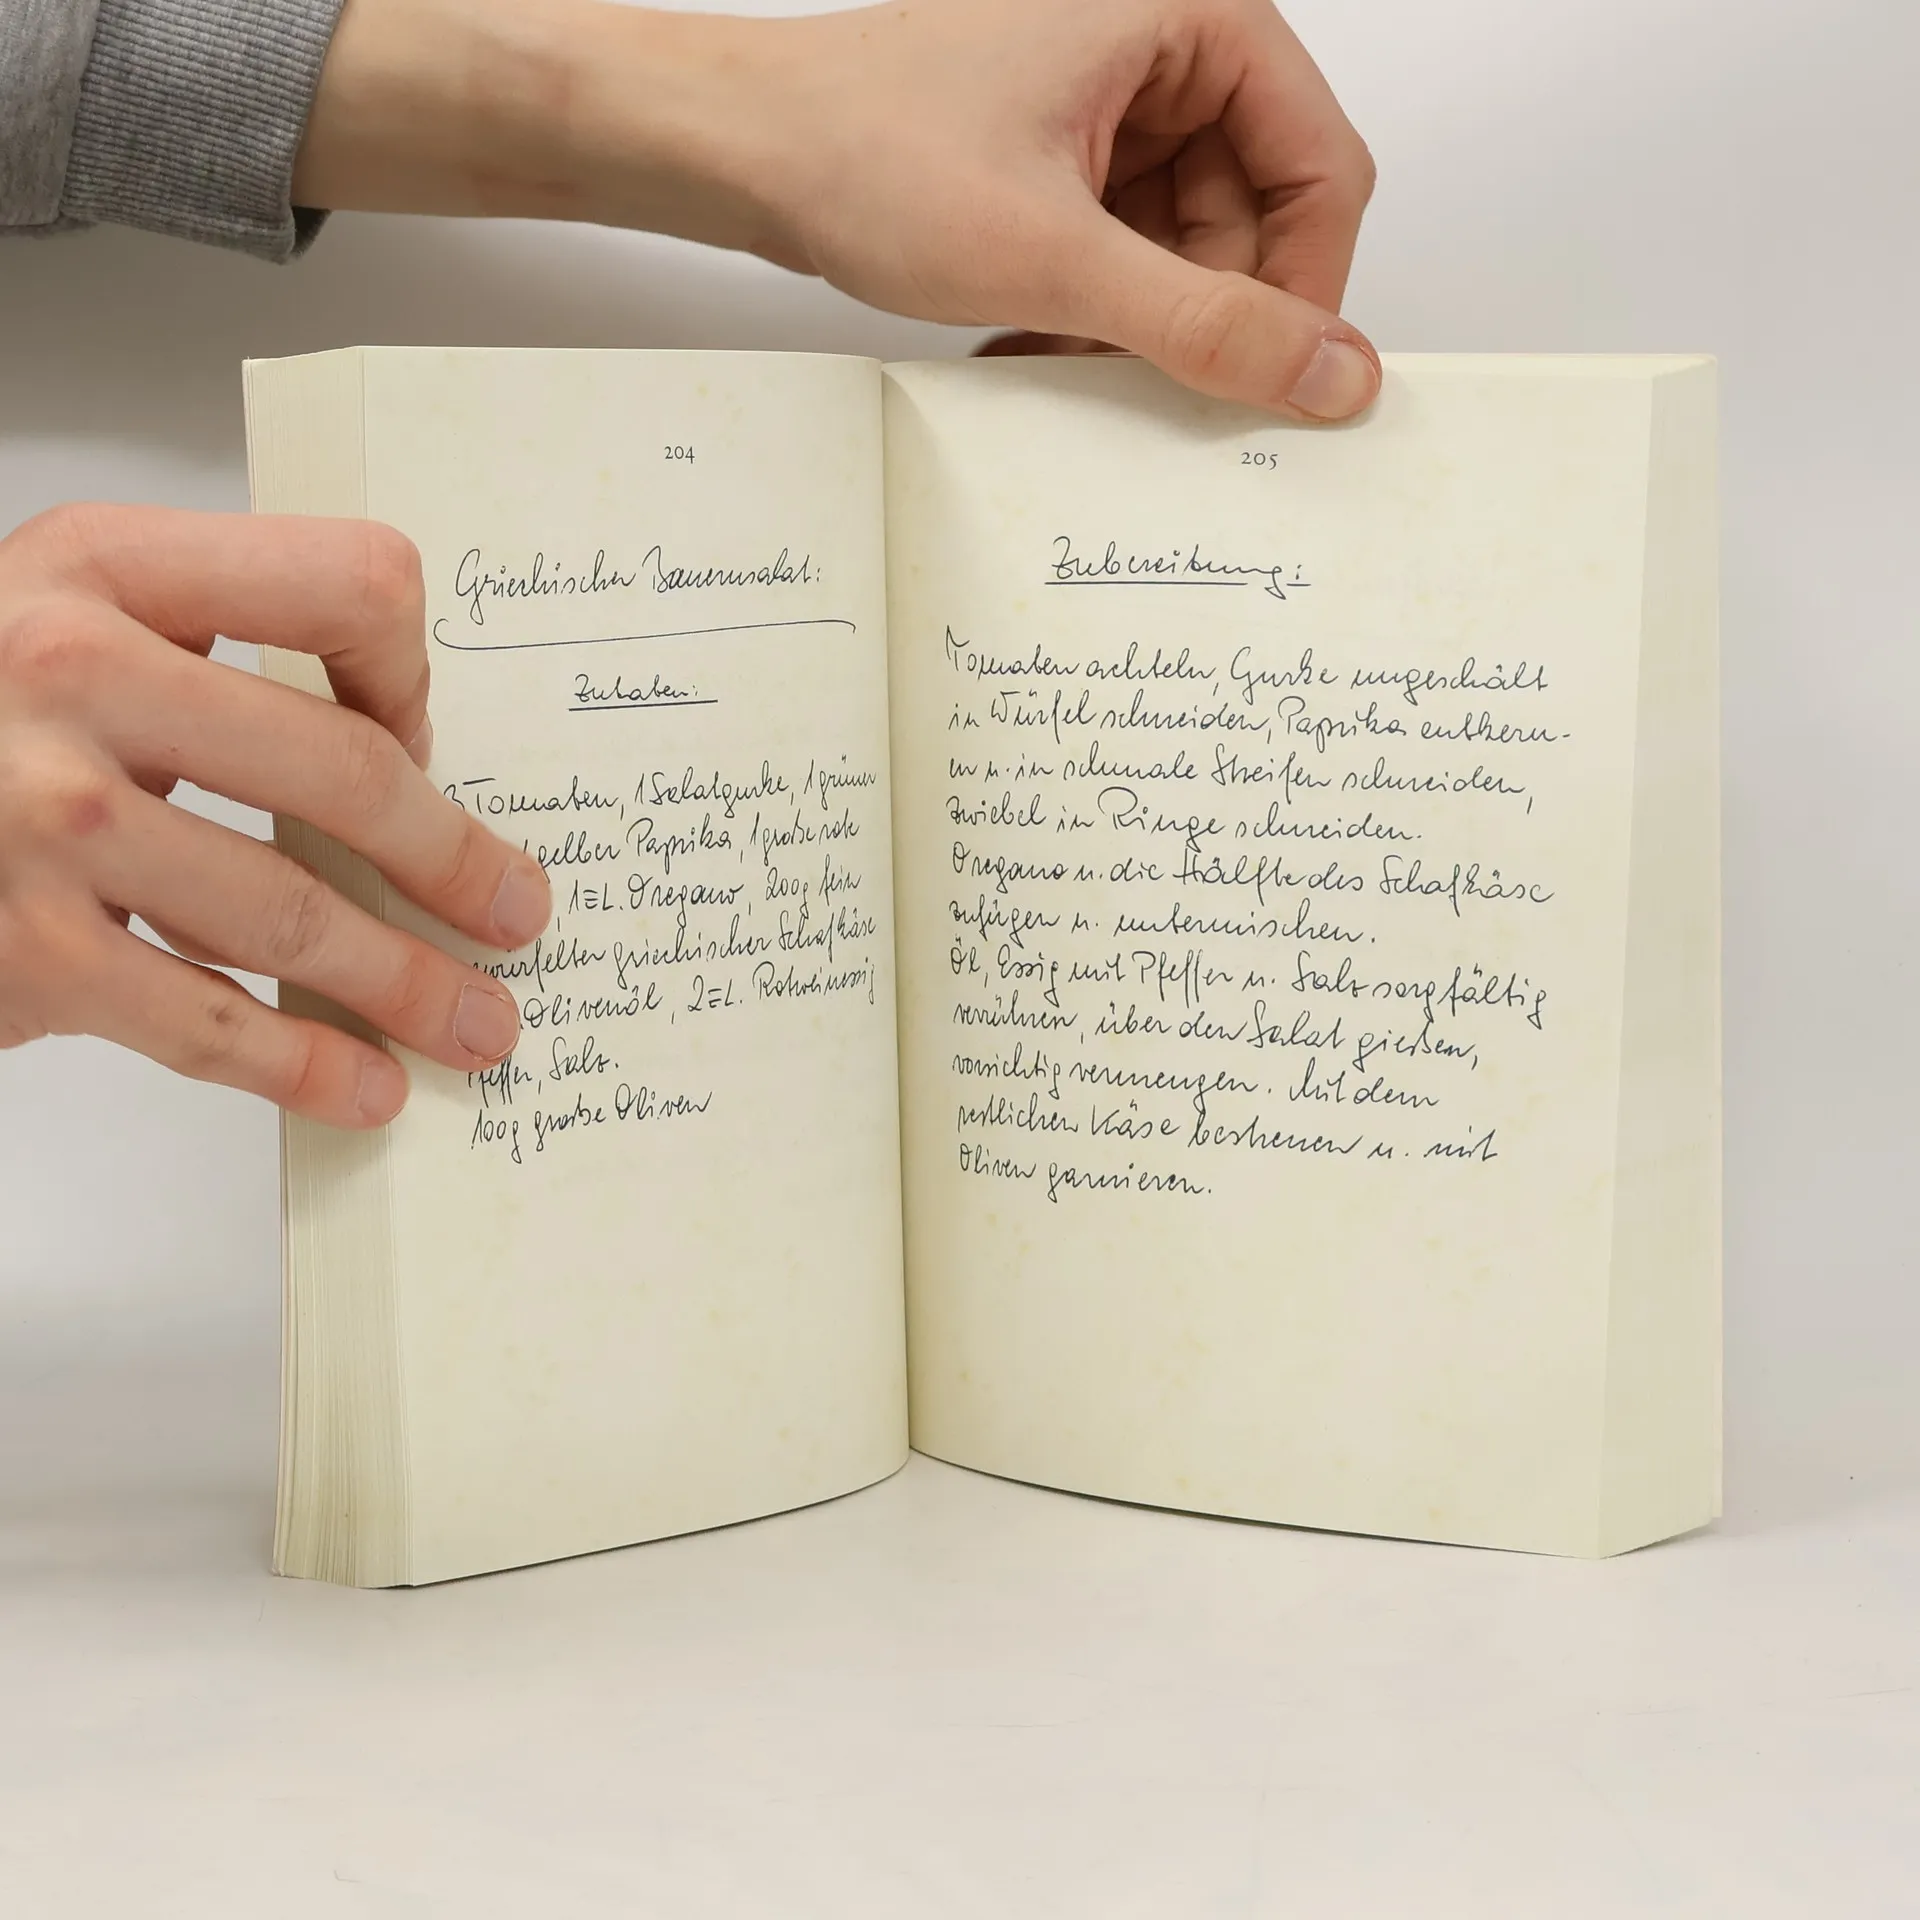 204
Griechischer Bauernsalat:
Zutaten:
3 Tomaten, 1 Salatgurke, 1 grüner
gelber Paprika, 1 große rote
, 1 EL. Oregano, 200g fein
würfelter griechischer Schafkäse
Olivenöl, 2 EL. Rotweinessig
Pfeffer, Salz.
100g große Oliven
205
Zubereitung:
Tomaten achteln, Gurke ungeschält
in Würfel schneiden, Paprika entkern-
en u. in schmale Streifen schneiden,
Zwiebel in Ringe schneiden.
Oregano u. die Hälfte des Schafkäse
zufügen u. untermischen.
Öl, Essig mit Pfeffer u. Salz sorgfältig
verrühren, über den Salat gießen,
vorsichtig vermengen. Mit dem
restlichen Käse bestreuen u. mit
Oliven garnieren.